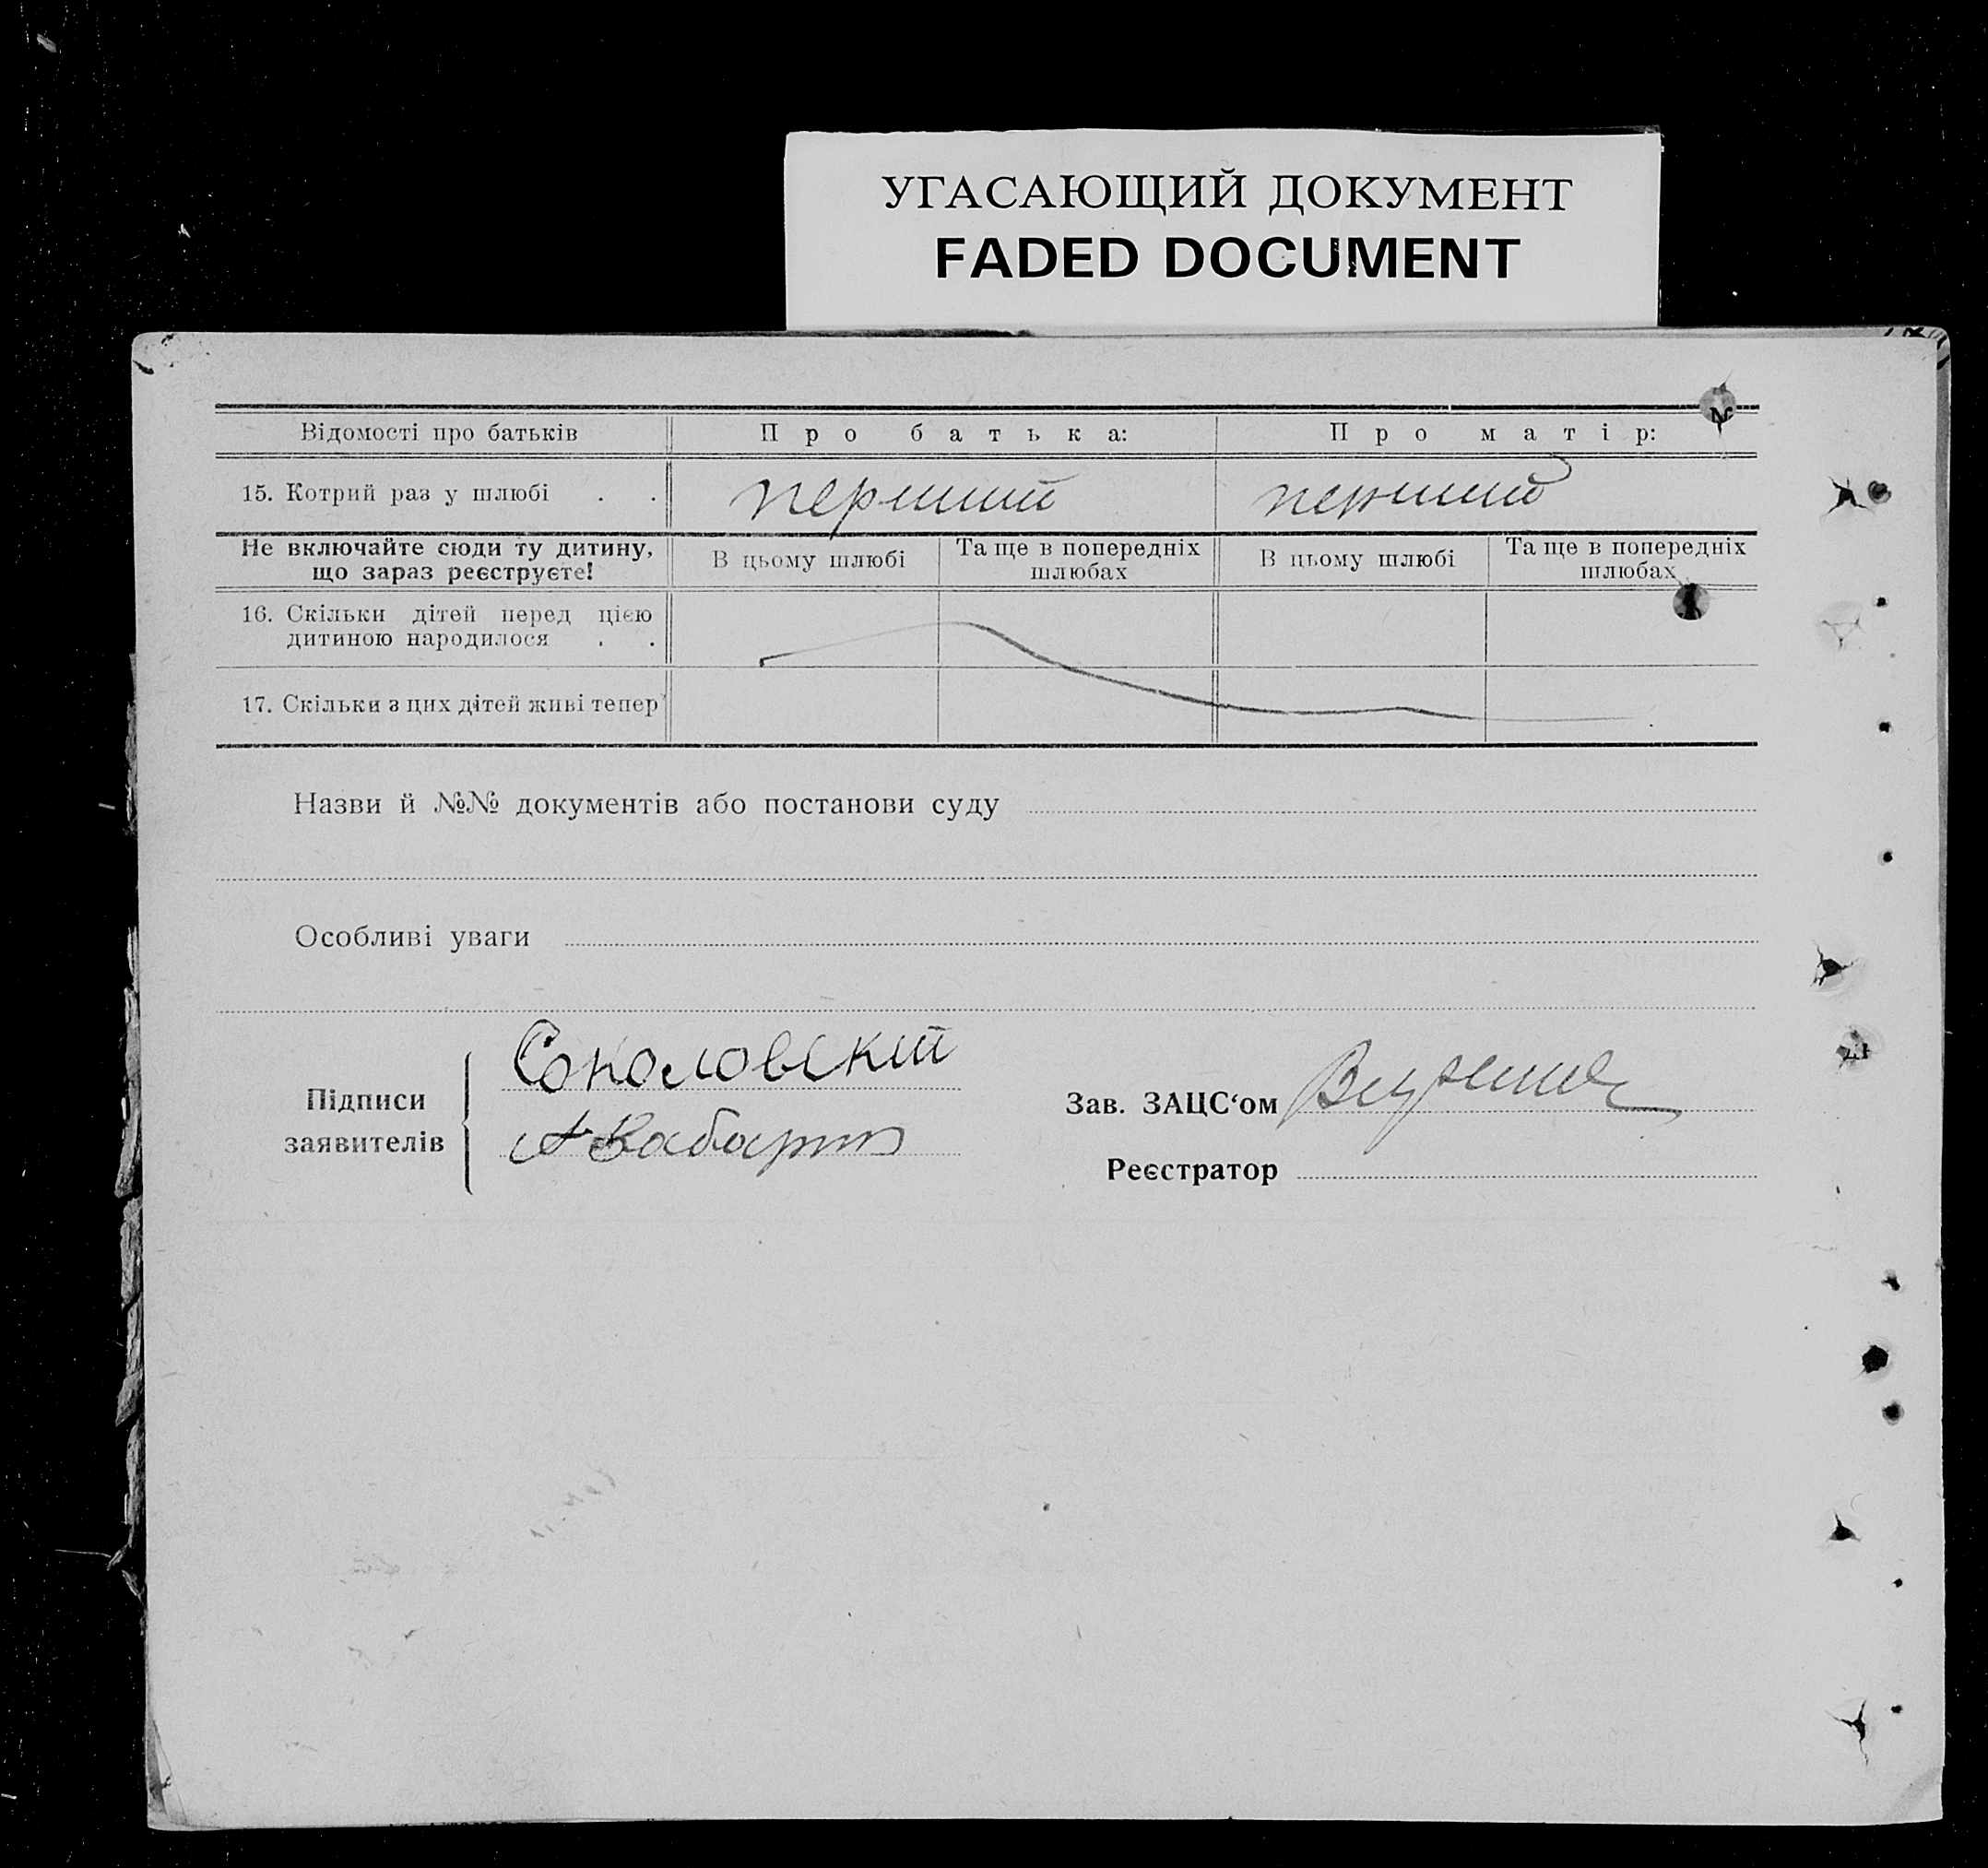 УГАСАЮЩИЙ ДОКУМЕНТ
FADED DOCUMENT
Відомості про батьків Про батька: Про матір:
15. Котрий раз у шлюбі . . перший перший
Не включайте сюди ту дитину, що зараз реєструєте! В цьому шлюбі Та ще в попередніх шлюбах В цьому шлюбі Та ще в попередніх шлюбах
16. Скільки дітей перед цією
дитиною народилося . .
17. Скільки з цих дітей живі тепер
Назви й №№ документів або постанови суду
Особливі уваги
Підписи заявителів
Соколовский
Зав. ЗАЦС‘ом
Реєстратор